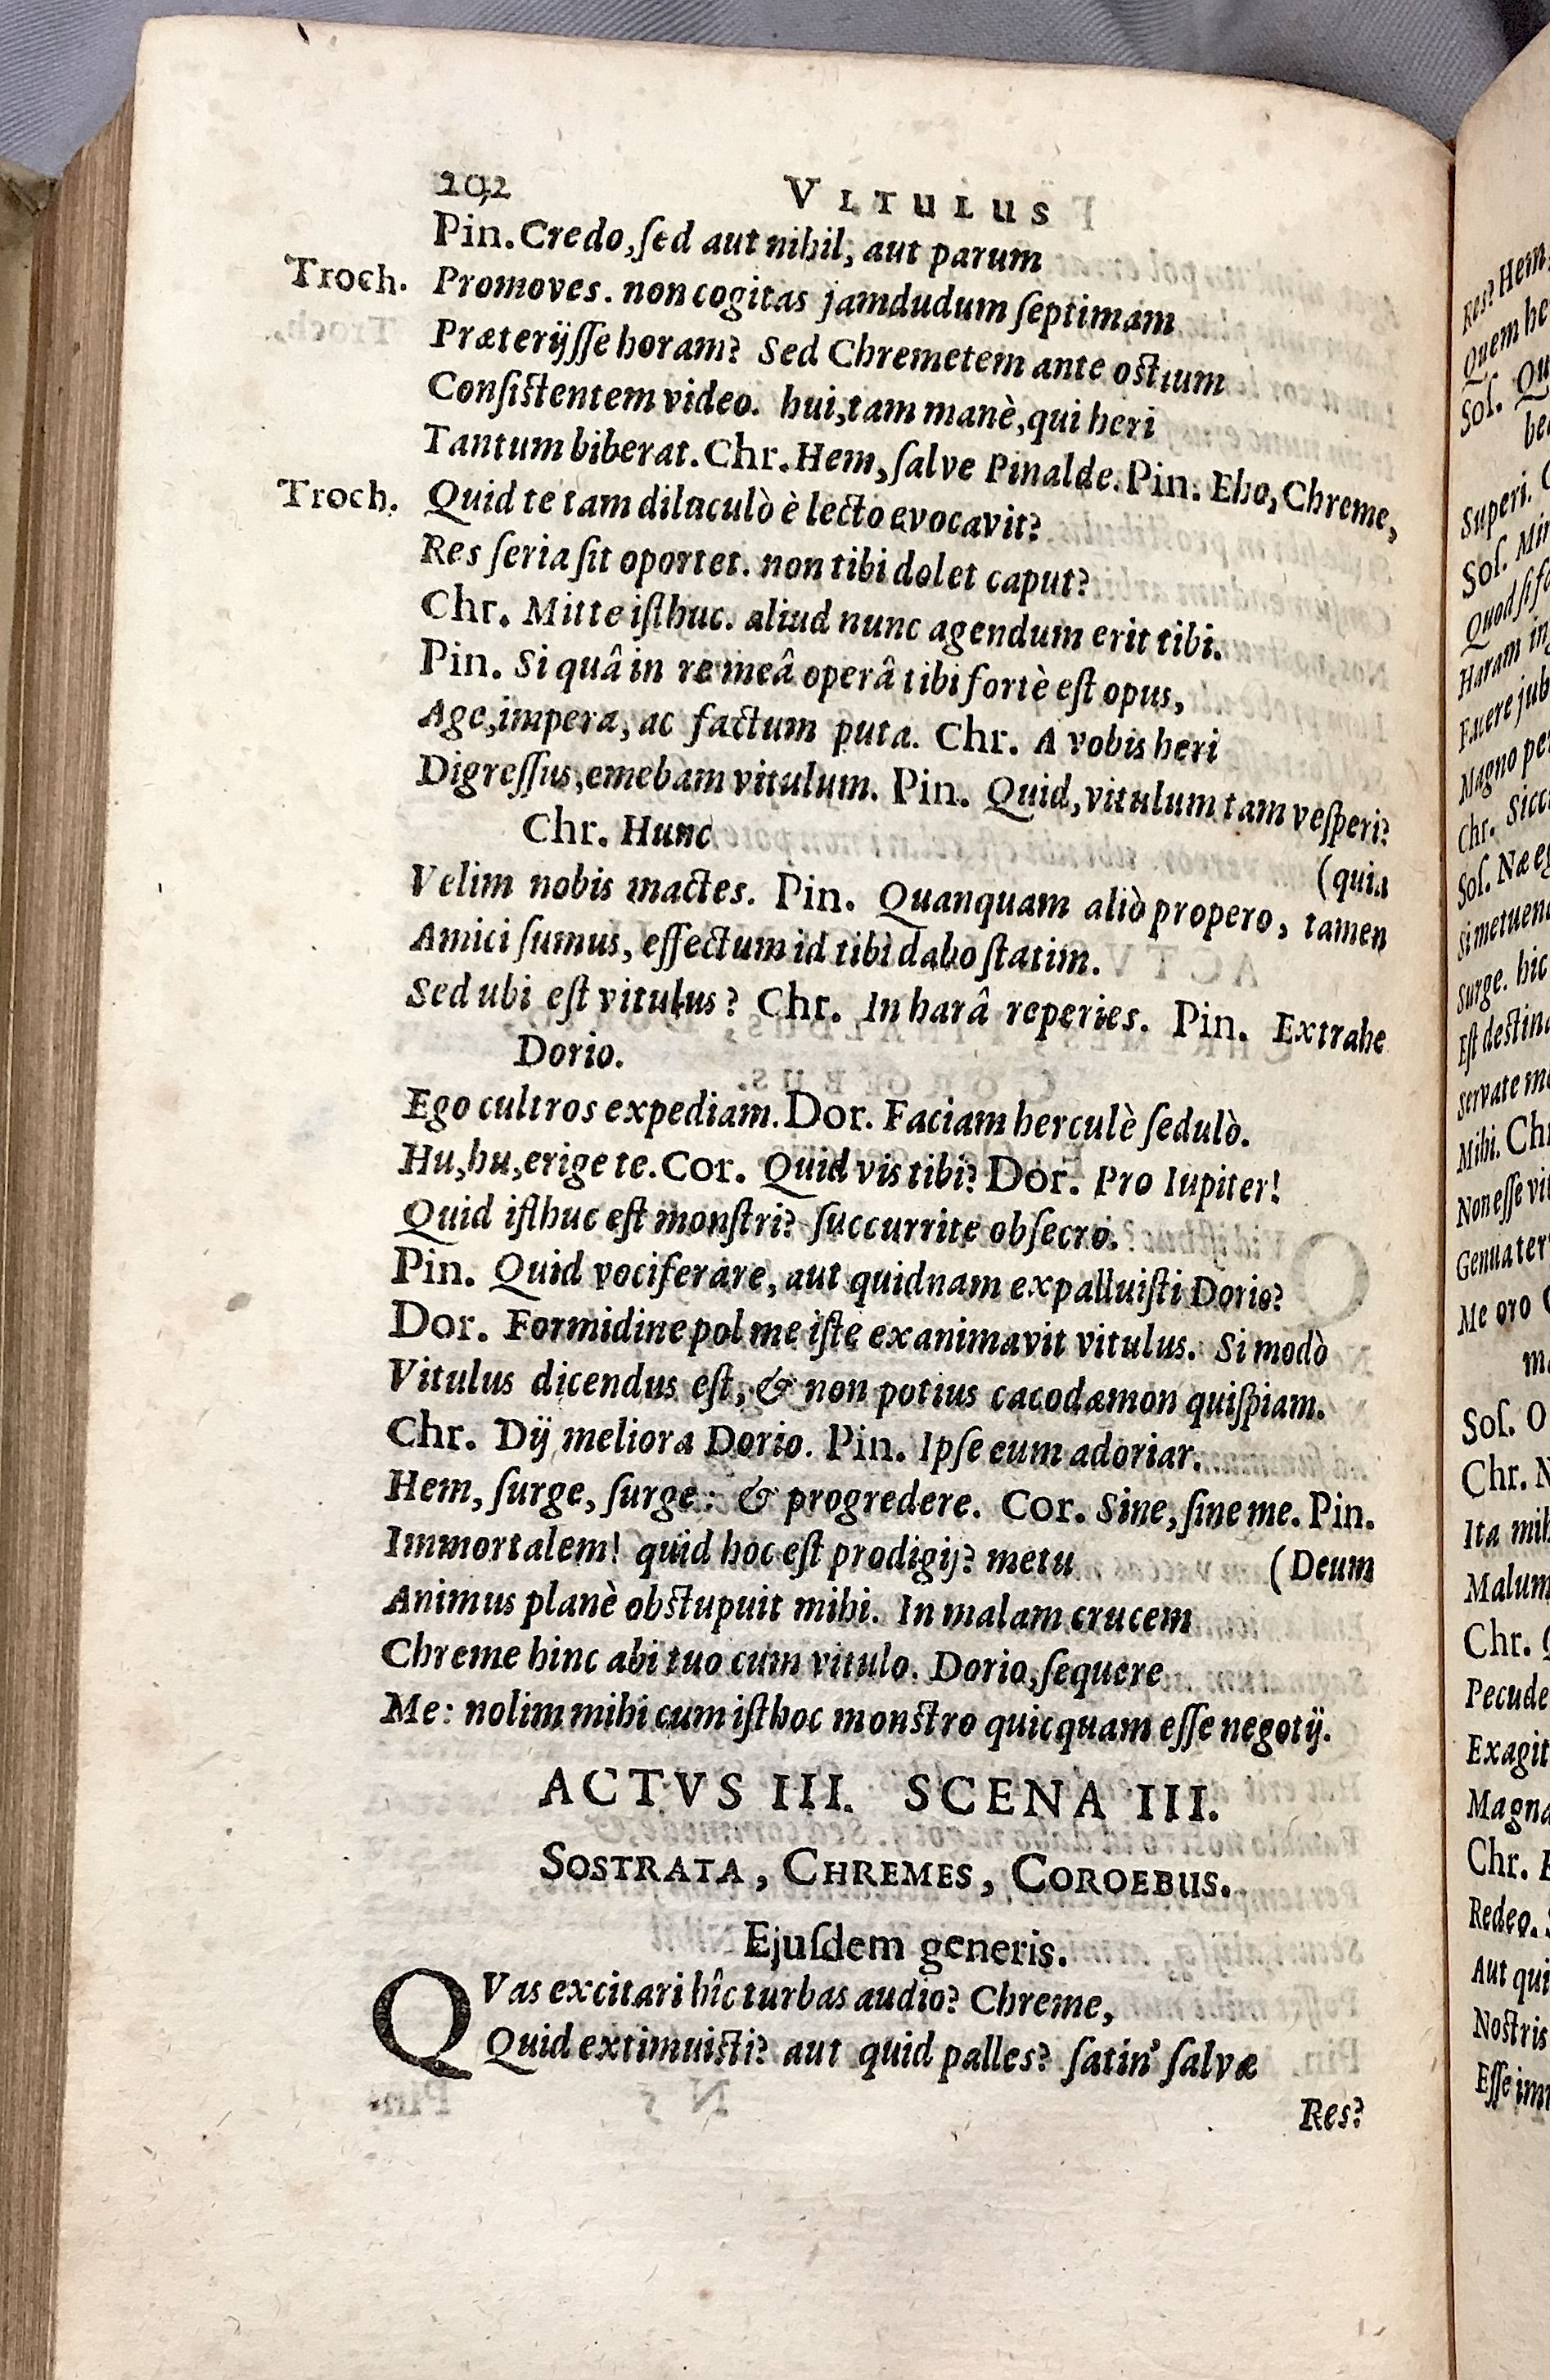 202 VITULUS
Pin. Credo, ſed aut nihil, aut parum
Troch. Promoves. non cogitas jamdudum ſeptimam
Præterijſſe horam? Sed Chremetem ante oſtium
Conſiſtentem video. hui, tam manè, qui heri
Tantum biberat. Chr. Hem, ſalve Pinalde. Pin. Eho, Chreme,
Troch. Quid te tam diluculò è lecto evocavit?
Res ſeria ſit oportet. non tibi dolet caput?
Chr. Mitte iſthuc. aliud nunc agendum erit tibi.
Pin. Si quâ in re meâ operâ tibi fortè eſt opus,
Age, impera, ac factum puta. Chr. A vobis heri
Digreſſus, emebam vitulum. Pin. Quid, vitulum tam veſperi?
Chr. Hunc
(quia
Velim nobis mactes. Pin. Quanquam aliò propero, tamen
Amici ſumus, effectum id tibi dabo ſtatim.
Sed ubi eſt vitulus? Chr. In harâ reperies. Pin. Extrahe
Dorio.
Ego cultros expediam. Dor. Faciam herculè ſedulò.
Hu, hu, erige te. Cor. Quid vis tibi? Dor. Pro Iupiter!
Quid iſthuc eſt monſtri? ſuccurrite obſecro.
Pin. Quid vociferare, aut quidnam expalluiſti Dorio?
Dor. Formidine pol me iſte exanimavit vitulus. Si modò
Vitulus dicendus eſt, & non potius cacodæmon quiſpiam.
Chr. Dij meliora Dorio. Pin. Ipſe eum adoriar.
Hem, ſurge, ſurge: & progredere. Cor. Sine, ſine me. Pin.
Immortalem! quid hoc eſt prodigij? metu (Deum
Animus planè obſtupuit mihi. In malam crucem
Chreme hinc abi tuo cum vitulo. Dorio, ſequere
Me: nolim mihi cum iſthoc monſtro quicquam eſſe negotij.
ACTVS III. SCENA III.
SOSTRATA, CHREMES, COROEBUS.
Ejuſdem generis.
QVas excitari hîc turbas audio? Chreme,
Quid extimuiſti? aut quid palles? ſatin' ſalvæ
Res?
Res? Hem
Quem he
Soſ. Qu
Superi.
Soſ. Mir
Quod ſi
Haram in
Magno per
Chr. Sicc
Soſ. Næ eg
Si metuen
Surge. hic
Eſt deſtin
Servate me
Mihi. Chr
Non eſſe vit
Me oro
Soſ. O
Chr. N
Ita mih
Malum
Chr.
Pecude
Exagit
Magna
Chr.
Redeo.
Aut qui
Noſtris
Eſſe im